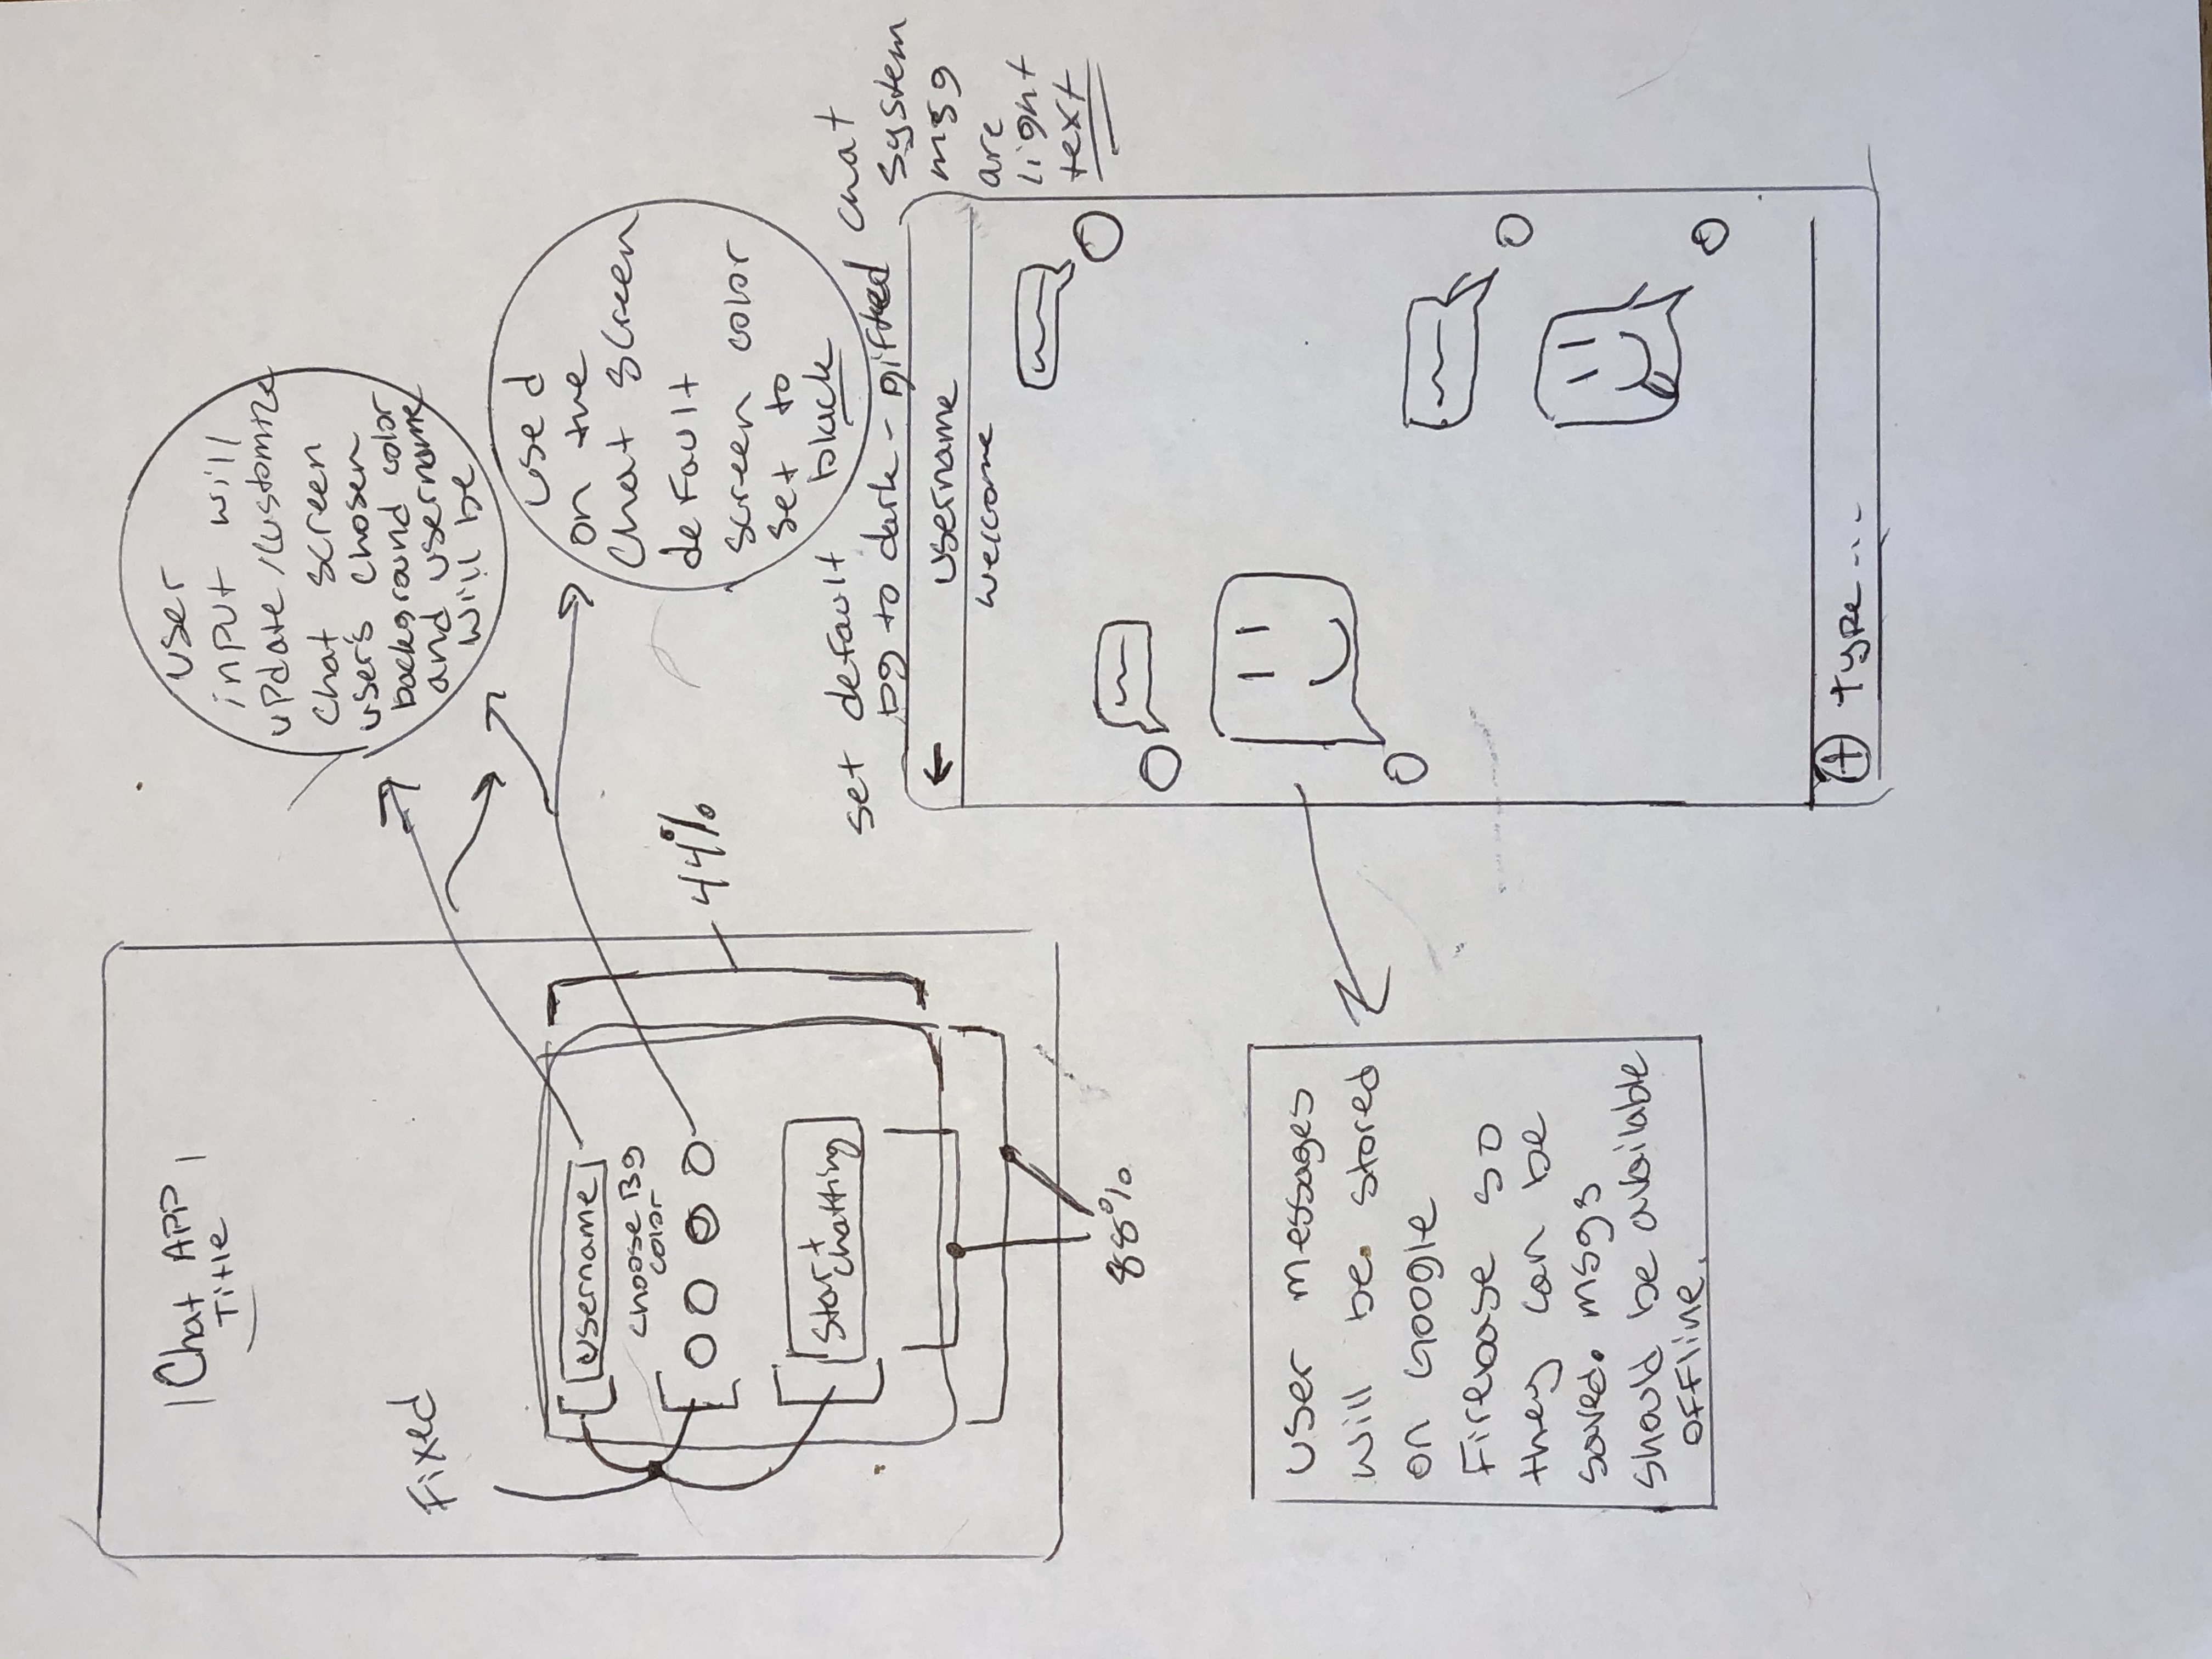 Chat APP
Title
Fixed
username
choose Bg
color
Start
chatting
44%
88%
user
input will
update/customize
chat screen
user's chosen
background color
and username
will be
used
on the
Chat screen
default
screen color
set to
black
set default
bg to dark - gifted chat
system
msg
are
light
text
←
username
welcome
+ type...
user messages
will be stored
on Google
Firebase so
they can be
saved. msgs
should be available
offline.